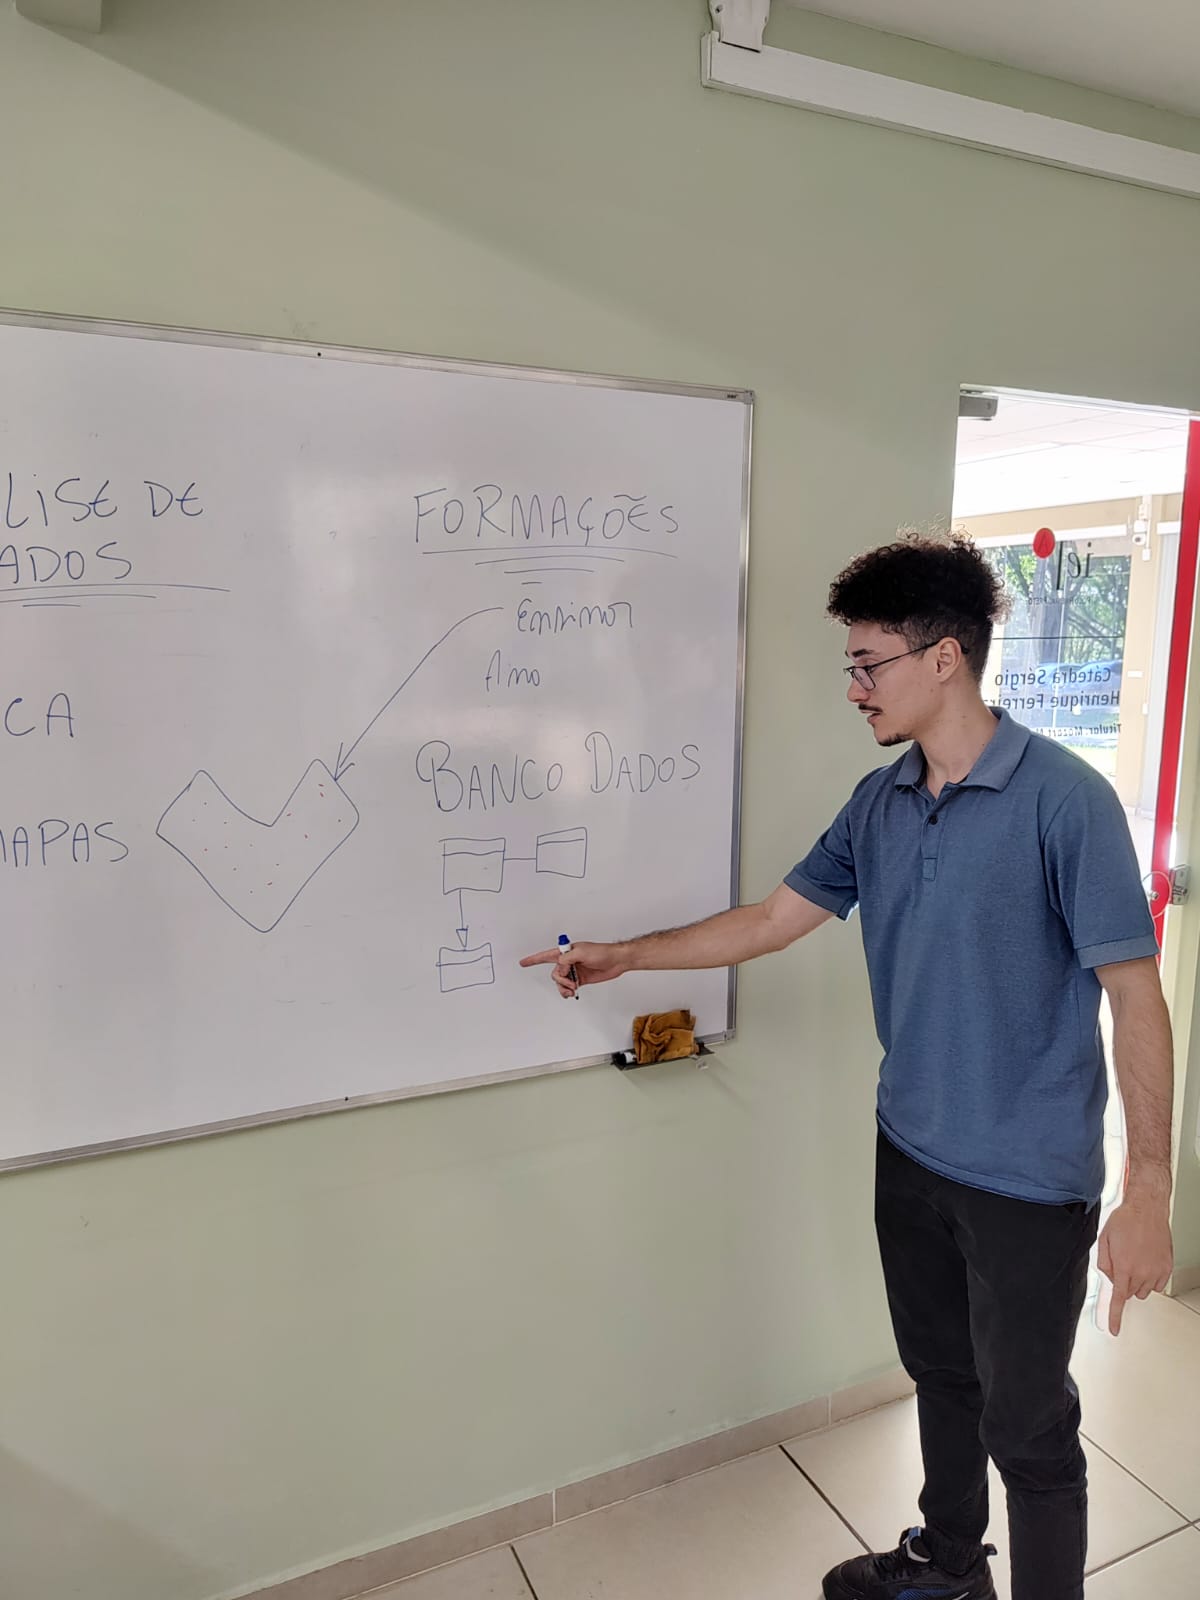 LISE DE
ADOS
CA
MAPAS
FORMAÇÕES
Ensinor
Ano
BANCO DADOS
iea
Cátedra Sérgio
Henrique Ferreira
Titular: